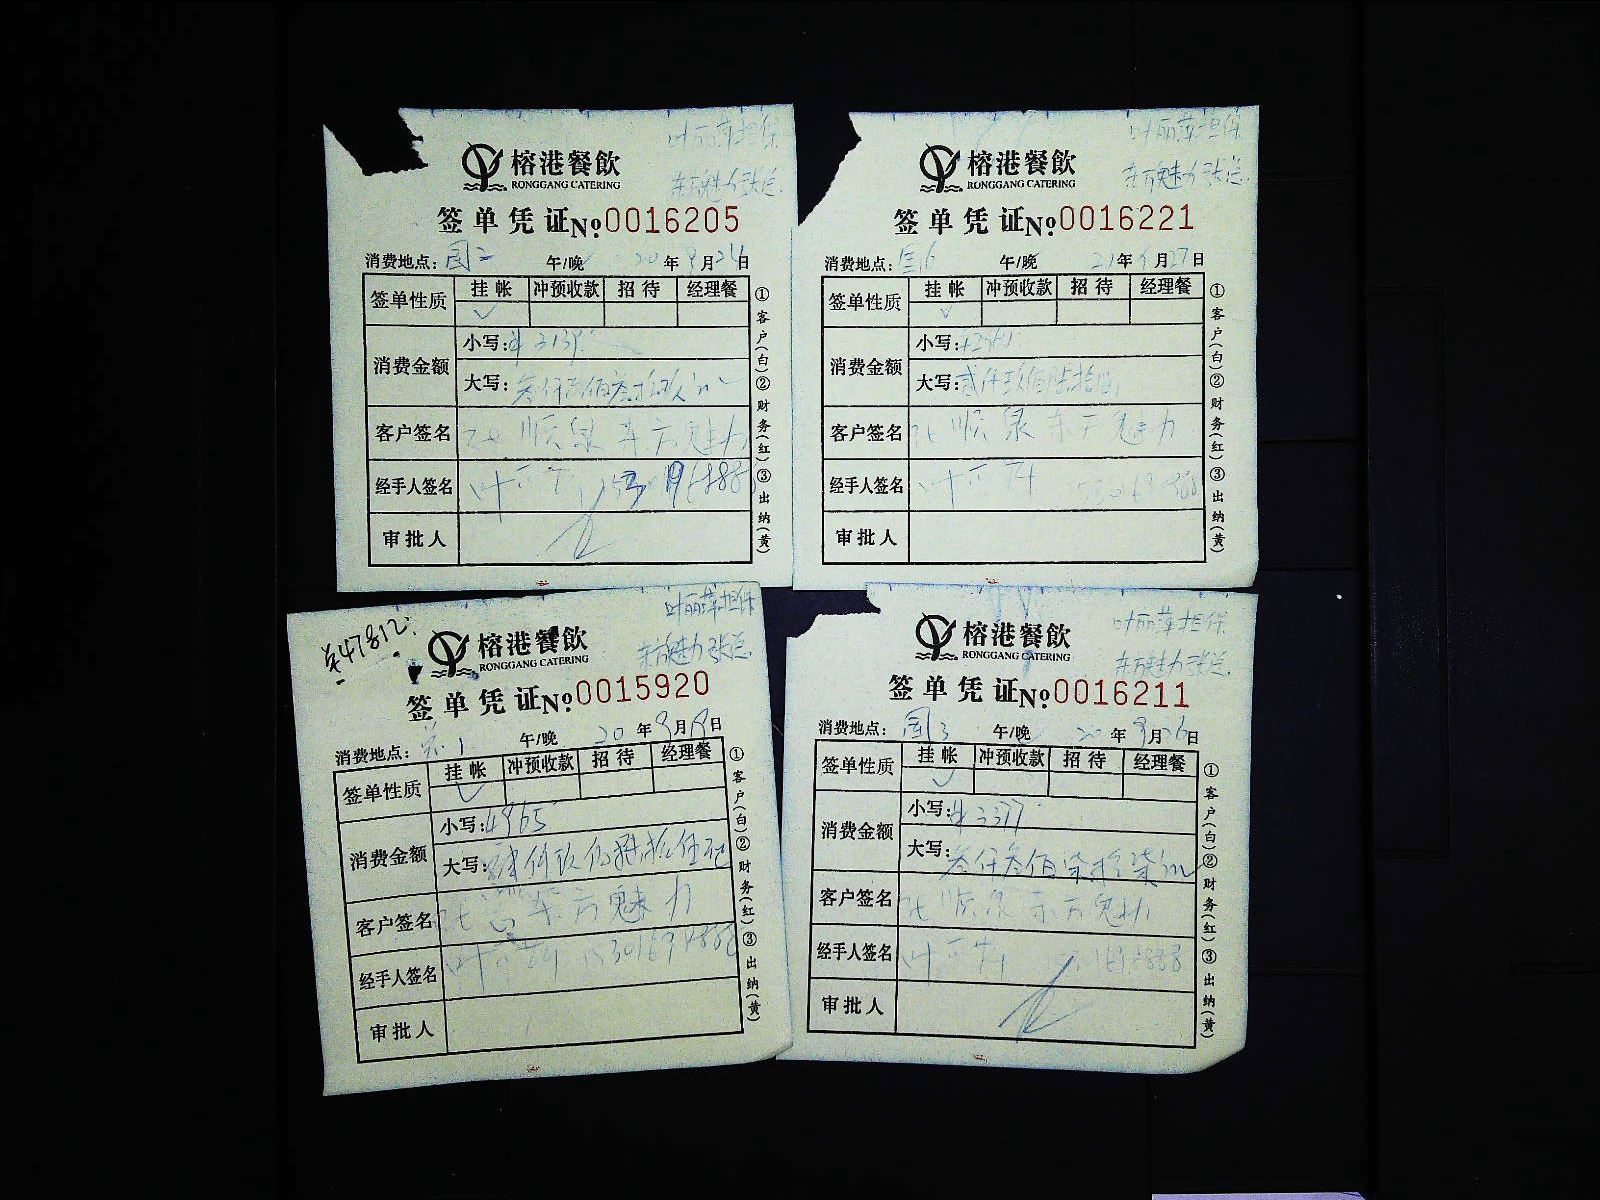 叶丽萍担保
东方魅力张总.
榕港餐飲
RONGGANG CATERING
签单凭证No.0016205
消费地点: 午/晚 20年9月24日
签单性质 挂帐 冲预收款 招待 经理餐
✓
消费金额 小写:¥3139
大写:叁仟 佰叁拾玖
客户签名 张顺泉 东方魅力
经手人签名 叶
审批人
①客户(白)②财务(红)③出纳(黄)
叶丽萍担保
东方魅力张总.
榕港餐飲
RONGGANG CATERING
签单凭证No.0016221
消费地点: 午/晚 年9月27日
签单性质 挂帐 冲预收款 招待 经理餐
✓
消费金额 小写:
大写:贰仟玖佰陆拾
客户签名 张顺泉 东方魅力
经手人签名 叶
审批人
①客户(白)②财务(红)③出纳(黄)
叶丽萍担保
47812
东方魅力张总.
榕港餐飲
RONGGANG CATERING
签单凭证No.0015920
消费地点: 午/晚 20年9月19日
签单性质 挂帐 冲预收款 招待 经理餐
✓
消费金额 小写:4965
大写:肆仟玖佰陆拾伍元
客户签名 张总 东方魅力
经手人签名 叶 15301694888
审批人
①客户(白)②财务(红)③出纳(黄)
叶丽萍担保
东方魅力张总.
榕港餐飲
RONGGANG CATERING
签单凭证No.0016211
消费地点:国3 午/晚 20年9月26日
签单性质 挂帐 冲预收款 招待 经理餐
✓
消费金额 小写:¥3377
大写:叁仟叁佰柒拾柒元
客户签名 张顺泉 东方魅力
经手人签名 叶
审批人
①客户(白)②财务(红)③出纳(黄)